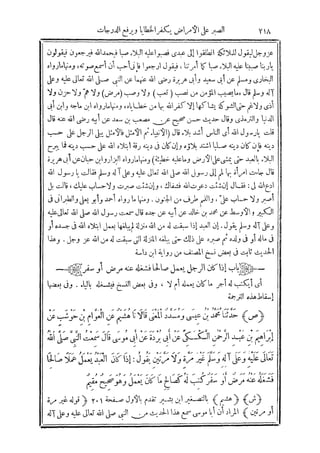 ٢١٨ الصبر على الأمراض يكفر الخطايا ويرفع الدرجات
عزوجل يقول للملائكة انطلقوا إلى عبدى فصبوا عليه البلاء صبا فيحمد الله فيرجعون فيقولون
يا ربنا صببنا عليه البلاء صبا كما أمرتنا . فيقول ارجعوا فإنى أحب أن أسمع صوته . ومنها مارواه
البخارى ومسلم عن أبى سعيد وأبى هريرة رضى الله عنهما عن النبى صلى الله تعالى عليه وعلى
آله وسلم قال : ما يصيب المؤمن من نصب ( تعب ) ولا وصب (مرض) ولا هم ولا حزن ولا
أذى ولا غم حتى الشوكة يشاكها إلا كفر الله بها من خطاياه . ومنها مارواه ابن ماجه وابن أبى
الدنيا والترمذى وقال حديث حسن صحيح عن مصعب بن سعد عن أبيه رضى الله عنه قال
قلت يا رسول الله أى الناس أشد بلاء قال (الأنبياء ثم الأمثل فالأمثل يبتلى الرجل على حسب
دينه فإن كان دينه صلبا اشتد بلاؤه وإن كان فى دينه رقة ابتلاه الله على حسب دينه فما يبرح
البلاء بالعبد حتى يمشى على الأرض وما عليه خطيئة) ومنها مارواه البزار وابن حبان عن أبى هريرة
قال جاءت امرأة بها لمم إلى رسول الله صلى الله تعالى عليه وعلى آله وسلم فقالت يا رسول الله
ادع الله لى : فقال إن شئت دعوت الله فشفاك ، وإن شئت صبرت ولا حساب عليك ، قالت بل
أصبر ولا حساب على . واللمم طرف من الجنون . ومنها ما رواه أحمد وأبو يعلى والطبرانى فى
الكبير والأوسط عن محمد بن خالد عن أبيه عن جده قال سمعت رسول الله صلى الله تعالى عليه
وعلى آله وسلم يقول . إن العبد إذا سبقت له من الله منزلة فلم يبلغها بعمل ابتلاه الله فى جسده أو
فى ماله أو فى ولده ثم صبره على ذلك حتى يبلغه المنزلة التى سبقت له من الله عز وجل . وهذا
الحديث ثابت فى بعض نسخ المصنف من رواية ابن داسة
باب إذا كان الرجل يعمل صالحا فشغله عنه مرض أو سفر
أى أيكتب له أجر ما كان يعمله أم لا ، وفى بعض النسخ فيشغله بالياء . وفى بعضها
إسقاط هذه الترجمة
(ص) حَدَّثَنَا مُحَمَّدُ بْنُ عِيسَى وَمُسَدَّدٌ الْمَعْنَى قَالَا نَا هُشَيْمٌ عَنِ الْعَوَّامِ بْنِ حَوْشَبٍ عَنْ
إِبْرَاهِيمَ بْنِ عَبْدِ الرَّحْمَنِ السَّكْسَكِىِّ عَنْ أَبِى بُرْدَةَ عَنْ أَبِى مُوسَى قَالَ سَمِعْتُ النَّبِىَّ صَلَّى اللهُ
تَعَالَى عَلَيْهِ وَعَلَى آلِهِ وَسَلَّمَ غَيْرَ مَرَّةٍ وَلَا مَرَّتَيْنِ يَقُولُ : إِذَا كَانَ الْعَبْدُ يَعْمَلُ عَمَلًا صَالِحًا
فَشَغَلَهُ عَنْهُ مَرَضٌ أَوْ سَفَرٌ كُتِبَ لَهُ كَصَالِحِ مَا كَانَ يَعْمَلُ وَهُوَ صَحِيحٌ مُقِيمٌ
(ش) (هشيم) بالتصغير ابن بشير تقدم بالأول صفحة ٢٠١ (قوله غير مرة
أو مرتين) المراد أن أبا موسى سمع هذا الحديث من النبى صلى الله تعالى عليه وعلى آله